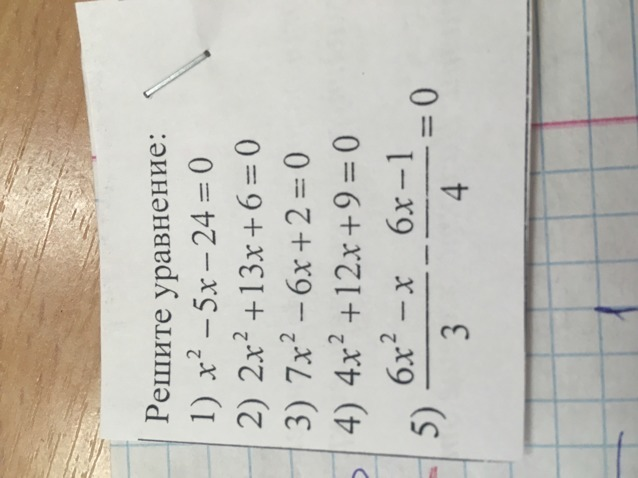 Решите уравнение:
1) x² − 5x − 24 = 0
2) 2x² + 13x + 6 = 0
3) 7x² − 6x + 2 = 0
4) 4x² + 12x + 9 = 0
5) (6x² − x)/3 − (6x − 1)/4 = 0